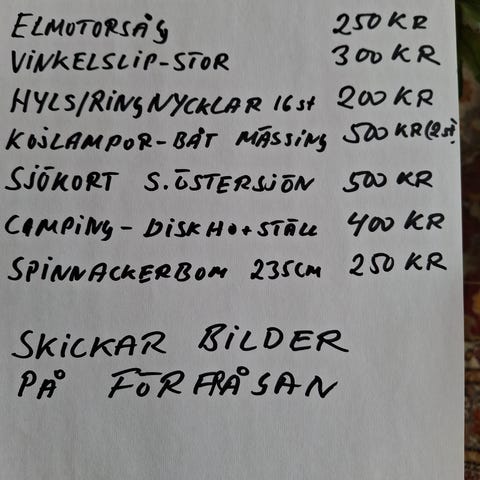 ELMOTORSÅG 250 KR
VINKELSLIP-STOR 300 KR
HYLS/RINGNYCKLAR 16 st 200 KR
KOJLAMPOR-BÅT MÄSSING 500 KR(2 st)
SJÖKORT S.ÖSTERSJÖN 500 KR
CAMPING-DISKHO+STÄLL 400 KR
SPINNACKERBOM 235CM 250 KR
SKICKAR BILDER
PÅ FÖRFRÅGAN